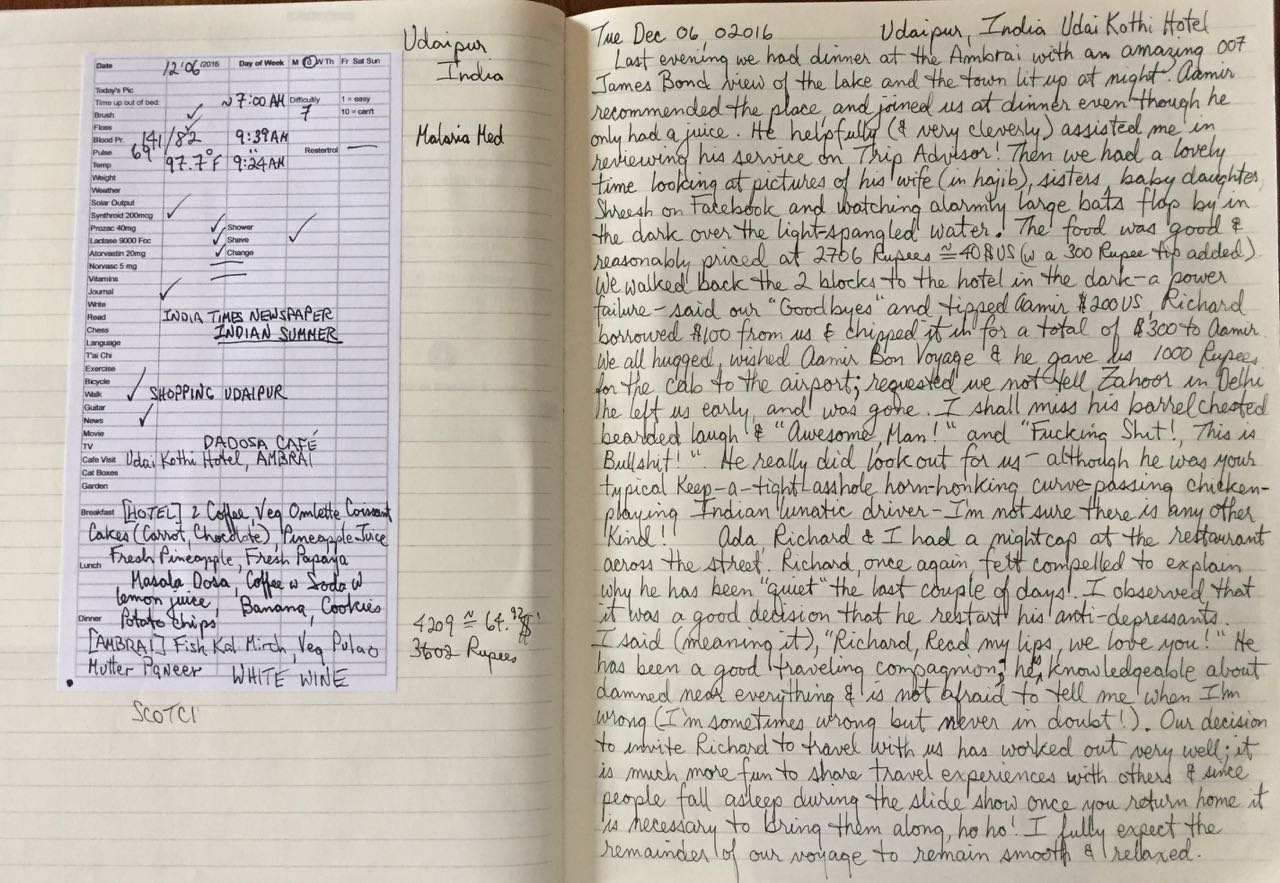 Date 12/06/2016 Day of Week M T W Th Fr Sat Sun
Today's Pic
Time up out of bed: ~7:00AM Difficultly 7 1 = easy
Brush ✓ 10 = can't
Floss
Blood Pr. 141/82 9:39AM
Pulse 69 " Restertrol —
Temp 97.7°F 9:24AM
Weight
Weather
Solar Output
Synthroid 200mcg ✓
Prozac 40mg ✓ Shower
Lactase 9000 Fcc ✓ Shave ✓
Atorvastin 20mg ✓ Change
Norvasc 5 mg
Vitamins
Journal ✓
Write
Read INDIA TIMES NEWSPAPER
Chess INDIAN SUMMER
Language
T'ai Chi
Exercise
Bicycle
Walk ✓ SHOPPING UDAIPUR
Guitar
News ✓
Movie
TV DADOSA CAFÉ
Cafe Visit Udai Kothi Hotel, AMBRAI
Cat Boxes
Garden
Breakfast [HOTEL] 2 Coffee, Veg Omlette Coissant
Cakes (Carrot, Chocolate), Pineapple Juice
Fresh Pineapple, Fresh Papaya
Lunch
Masala Dosa, Coffee w Soda w
lemon juice, Banana, Cookies
Dinner Potato chips
[AMBRAI] Fish Kal Mirch, Veg Pulao
Mutter Paneer WHITE WINE
SCOTCH
Udaipur
India
Malaria Med
4209 ≈ 64.92 $
3602 Rupees
Tue Dec 06, 02016 Udaipur, India Udai Kothi Hotel
Last evening we had dinner at the Ambrai with an amazing 007
James Bond view of the lake and the town lit up at night. Aamir
recommended the place, and joined us at dinner even though he
only had a juice. He helpfully (& very cleverly) assisted me in
reviewing his service on Trip Advisor! Then we had a lovely
time looking at pictures of his wife (in hajib), sisters, baby daughter,
Shreesh on Facebook and watching alarmly large bats flap by in
the dark over the light-spangled water. The food was good &
reasonably priced at 2706 Rupees ≅ 40$US (w a 300 Rupee tip added).
We walked back the 2 blocks to the hotel in the dark-a power
failure-said our "Goodbyes" and tipped Aamir $200US, Richard
borrowed $100 from us & chipped it in for a total of $300 to Aamir.
We all hugged, wished Aamir Bon Voyage & he gave us 1000 Rupees
for the cab to the airport; requested we not tell Zahoor in Delhi
he left us early, and was gone. I shall miss his barrelchested
bearded laugh & "Awesome, Man!" and "Fucking Shit!, This is
Bullshit!". He really did look out for us - although he was your
typical Keep-a-tight-asshole horn-honking curve-passing chicken-
playing Indian lunatic driver-I'm not sure there is any other
Kind!! Ada, Richard & I had a nightcap at the restaurant
across the street. Richard, once again, felt compelled to explain
why he has been "quiet" the last couple of days. I observed that
it was a good decision that he restart his anti-depressants.
I said (meaning it), "Richard, Read my lips, we love you!" He
has been a good traveling compagnion; he's knowledgeable about
damned near everything & is not afraid to tell me when I'm
wrong (I'm sometimes wrong but never in doubt!). Our decision
to invite Richard to travel with us has worked out very well; it
is much more fun to share travel experiences with others & since
people fall asleep during the slide show once you return home it
is necessary to bring them along, ho ho! I fully expect the
remainder of our voyage to remain smooth & relaxed.